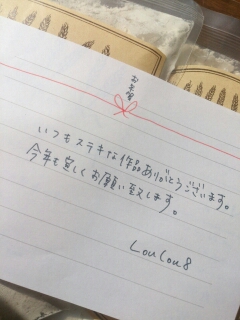 お年賀
いつもステキな作品ありがとうございます。
今年も宜しくお願い致します。
LouLou8